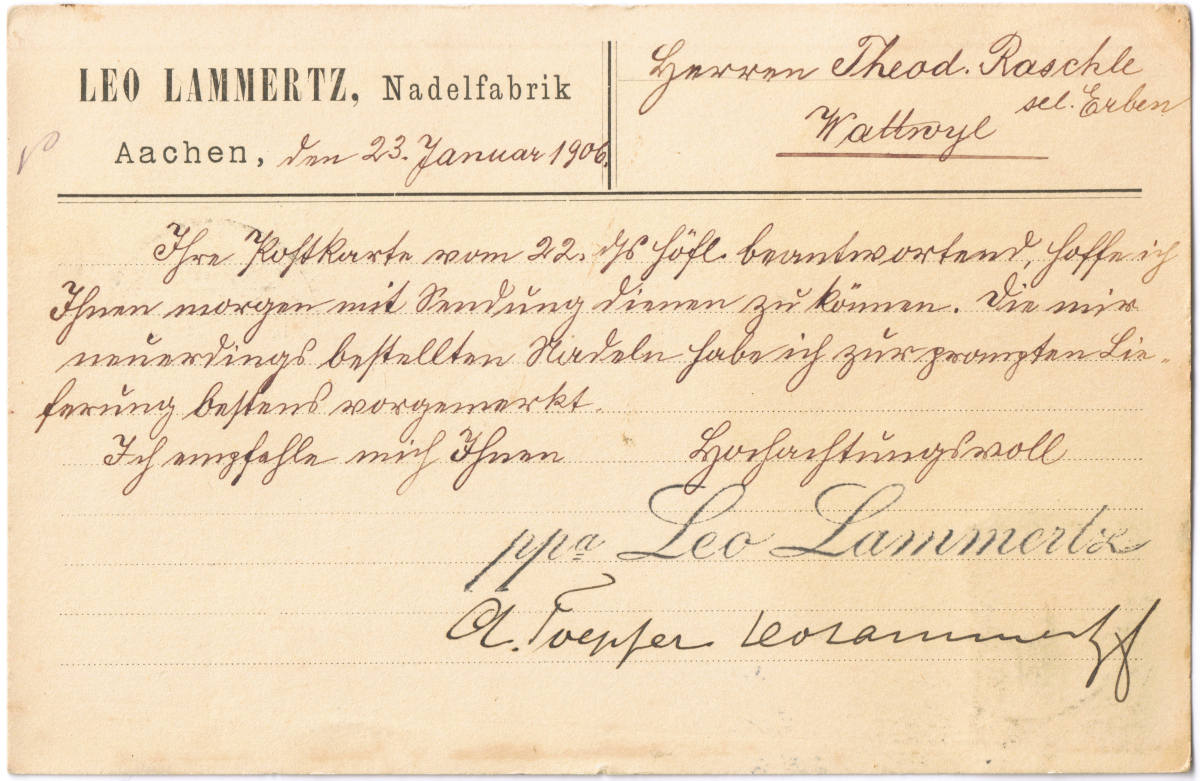 LEO LAMMERTZ, Nadelfabrik
Aachen, den 23. Januar 1906.
Herren Theod. Raschle
sel. Erben
Wattwyl
Ihre Postkarte vom 22. ds höfl. beantwortend, hoffe ich
Ihnen morgen mit Sendung dienen zu können. Die mir
neuerdings bestellten Nadeln habe ich zur prompten Lie-
ferung bestens vorgemerkt.
Ich empfehle mich Ihnen Hochachtungsvoll
ppa Leo Lammertz
A. Toepfer. Leo Lammertz